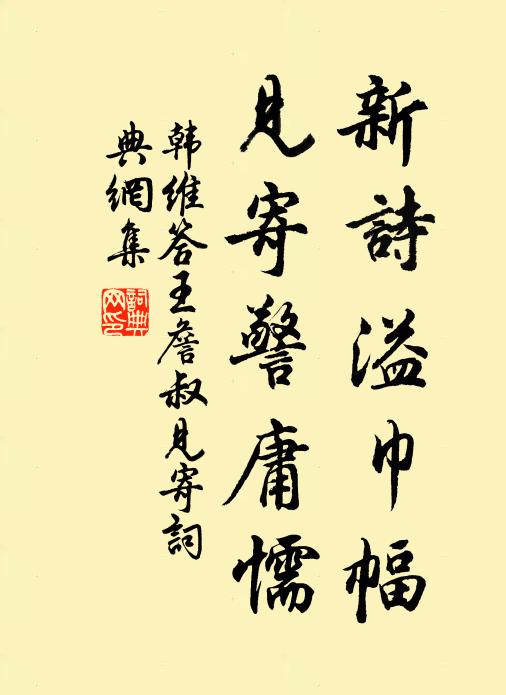 新詩溢巾幅
見寄警庸懦
韩維答王詹叔見寄詞
典網集
詞典网印